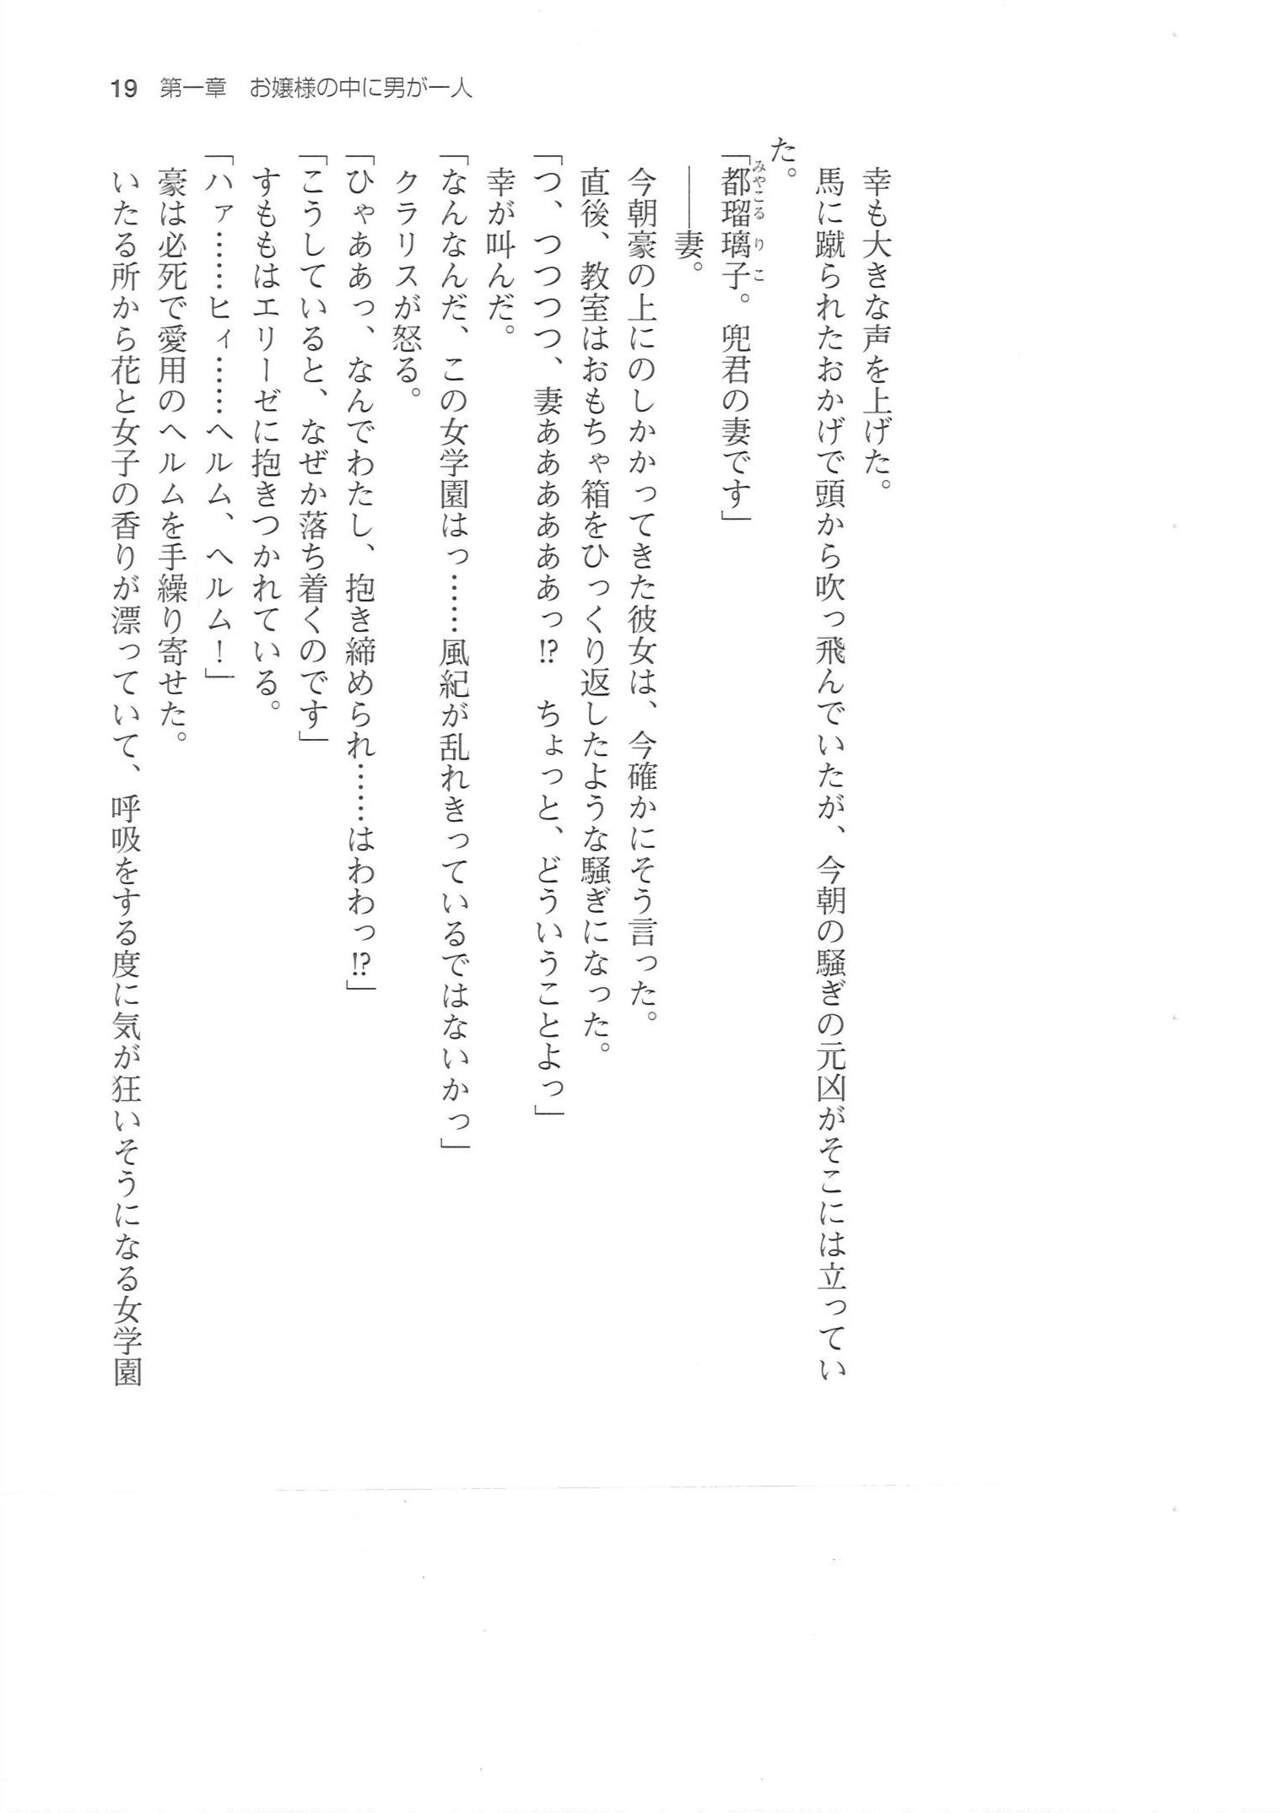 19 第一章 お嬢様の中に男が一人
幸も大きな声を上げた。
馬に蹴られたおかげで頭から吹っ飛んでいたが、今朝の騒ぎの元凶がそこには立ってい
た。
「都瑠璃子。兜君の妻です」
みやこるりこ
――妻。
今朝豪の上にのしかかってきた彼女は、今確かにそう言った。
直後、教室はおもちゃ箱をひっくり返したような騒ぎになった。
「つ、つつつつ、妻ああああああっ!? ちょっと、どういうことよっ」
幸が叫んだ。
「なんなんだ、この女学園はっ……風紀が乱れきっているではないかっ」
クラリスが怒る。
「ひゃああっ、なんでわたし、抱き締められ……はわわっ!?」
「こうしていると、なぜか落ち着くのです」
すももはエリーゼに抱きつかれている。
「ハァ……ヒィ……ヘルム、ヘルム!」
豪は必死で愛用のヘルムを手繰り寄せた。
いたる所から花と女子の香りが漂っていて、呼吸をする度に気が狂いそうになる女学園